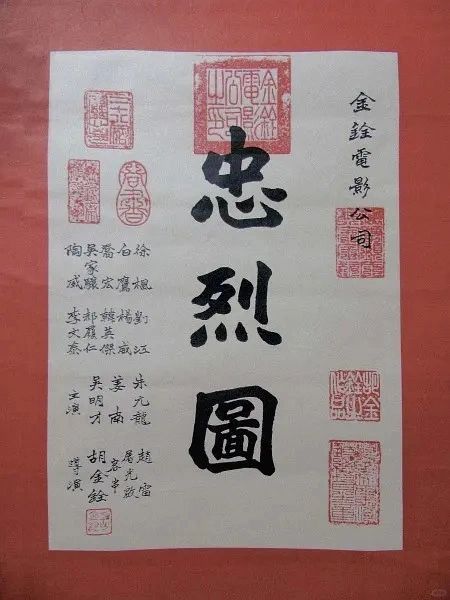 金銓電影公司
金銓電影公司之印
忠烈圖
徐楓 劉江
白鷹 楊威
喬宏 韓英傑
吳家驤 郝履仁
陶威 李文泰
朱九龍
姜南
吳明才
主演
趙雷
屠光啟
客串
胡金銓
導演